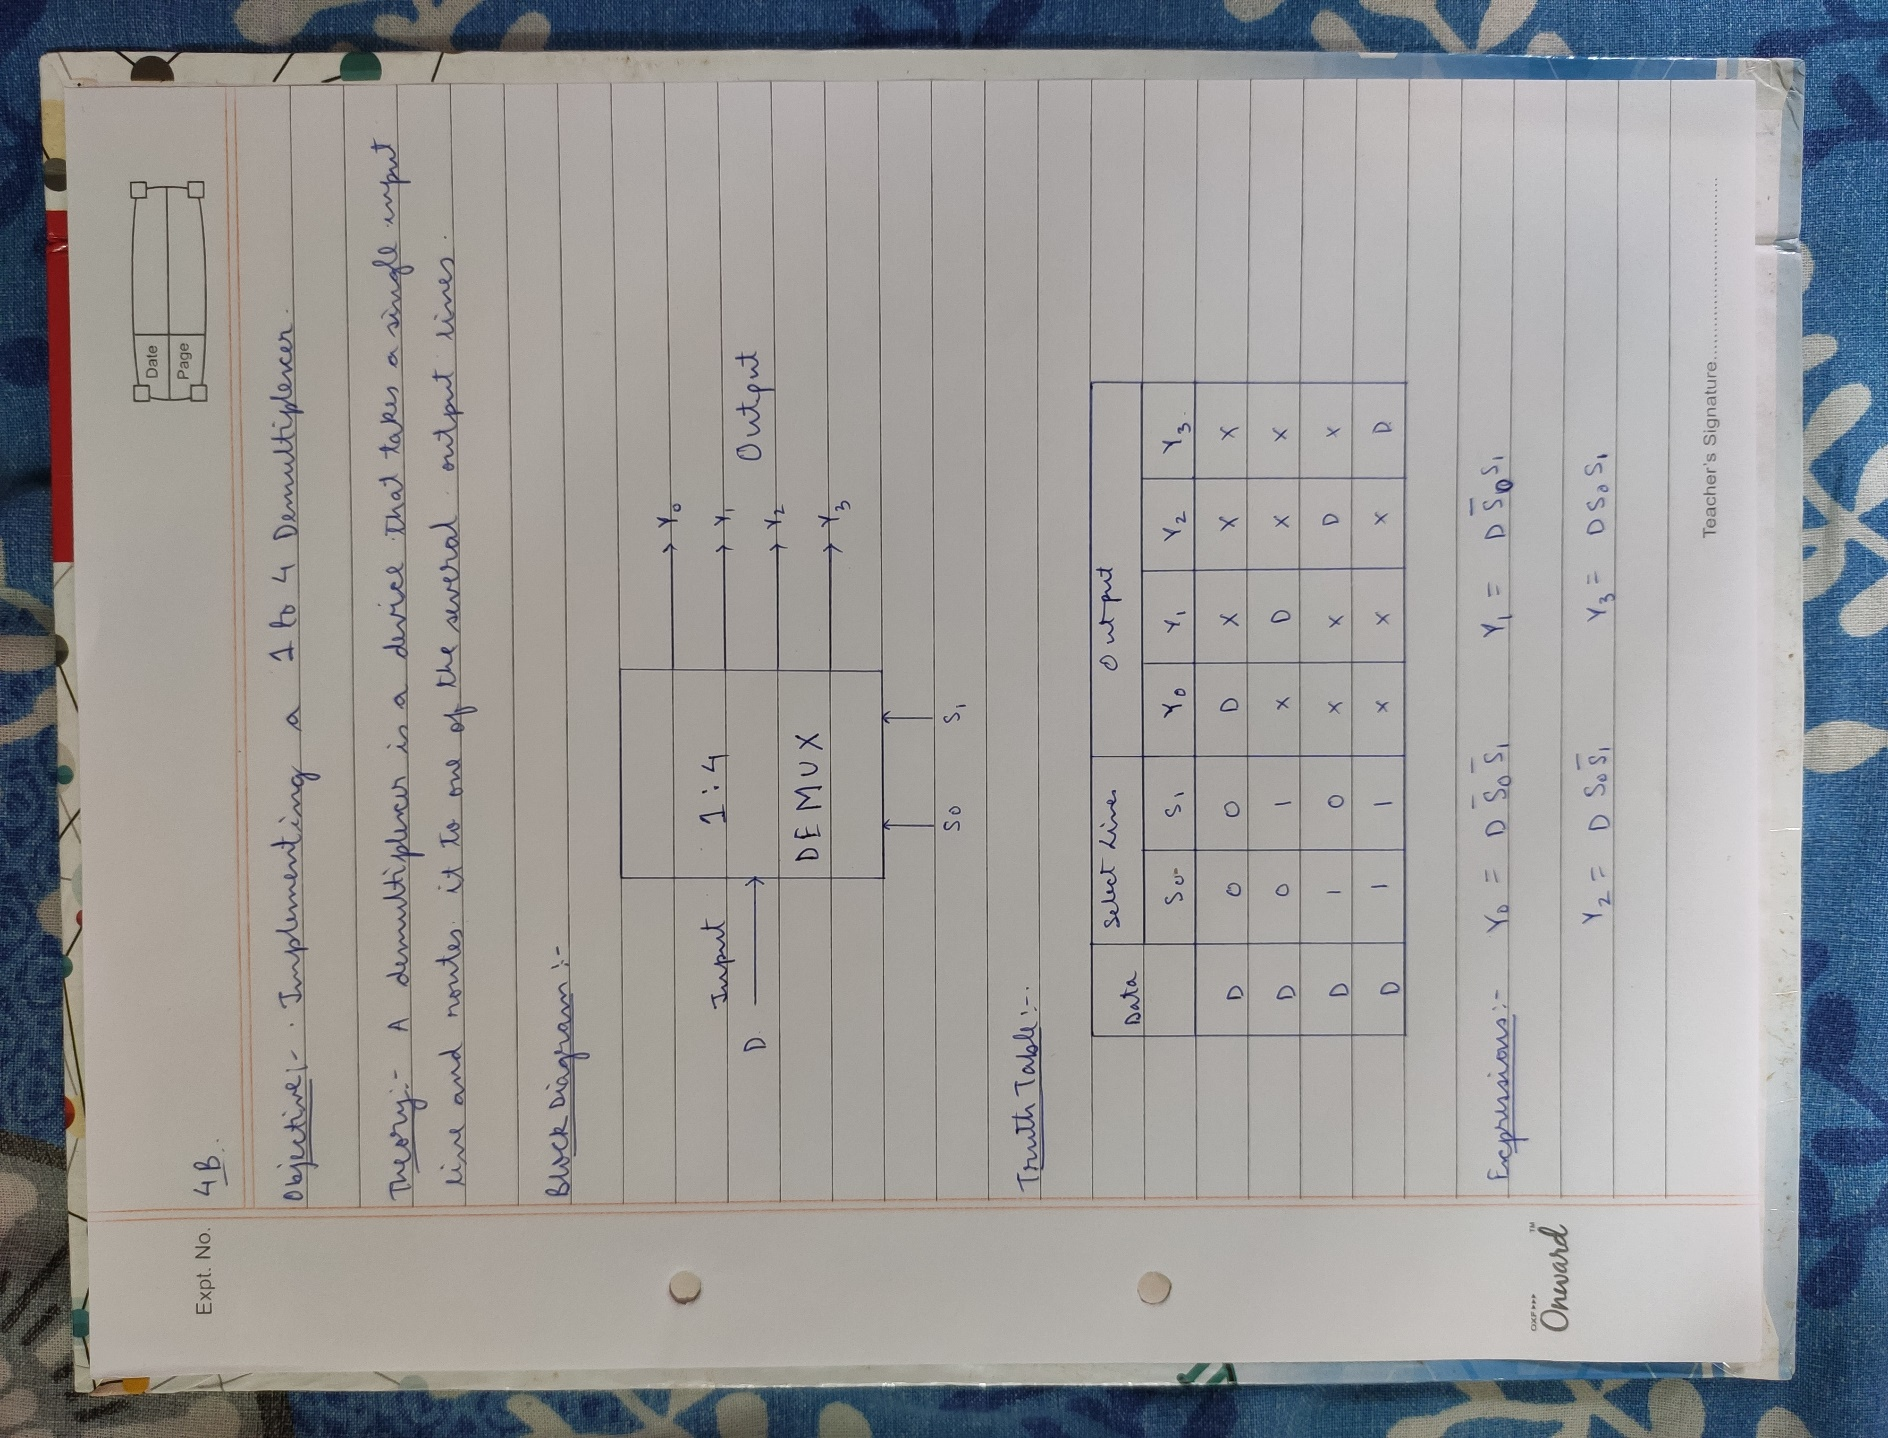 Expt. No. 4B.
Date
Page
Objective:- Implementing a 1 to 4 Demultiplexer.
Theory:- A demultiplexer is a device that takes a single input
line and routes it to one of the several output lines.
Block Diagram:-
Input
D
1:4
DEMUX
Y0
Y1
Y2
Y3
Output
S0 S1
Truth Table:-
Data Select Lines Output
S0 S1 Y0 Y1 Y2 Y3
D 0 0 D X X X
D 0 1 X D X X
D 1 0 X X D X
D 1 1 X X X D
Expressions:- Y0 = D S̄0 S̄1 Y1 = D S̄0 S1
Y2 = D S0 S̄1 Y3 = D S0 S1
OXF
Onward™
Teacher's Signature